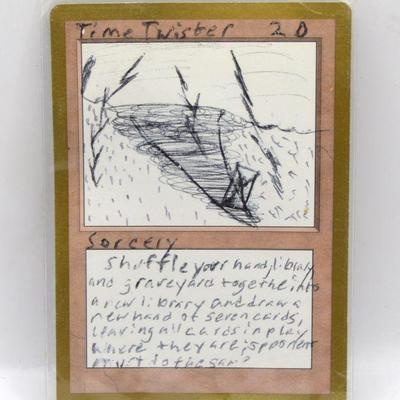 Time Twister 2 D
Sorcery
Shuffle your hand, library
and graveyard together into
a new library and draw a
new hand of seven cards,
leaving all cards in play
where they are; opponent
must do the same